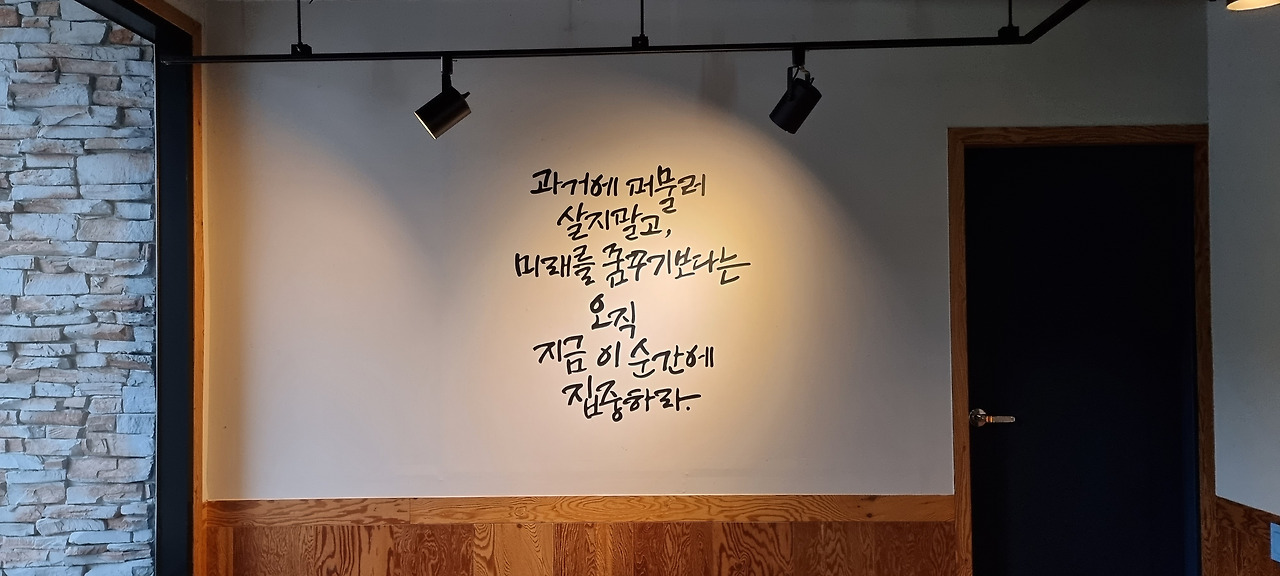 과거에 머물러
살지말고,
미래를 꿈꾸기보다는
오직
지금 이 순간에
집중하라.